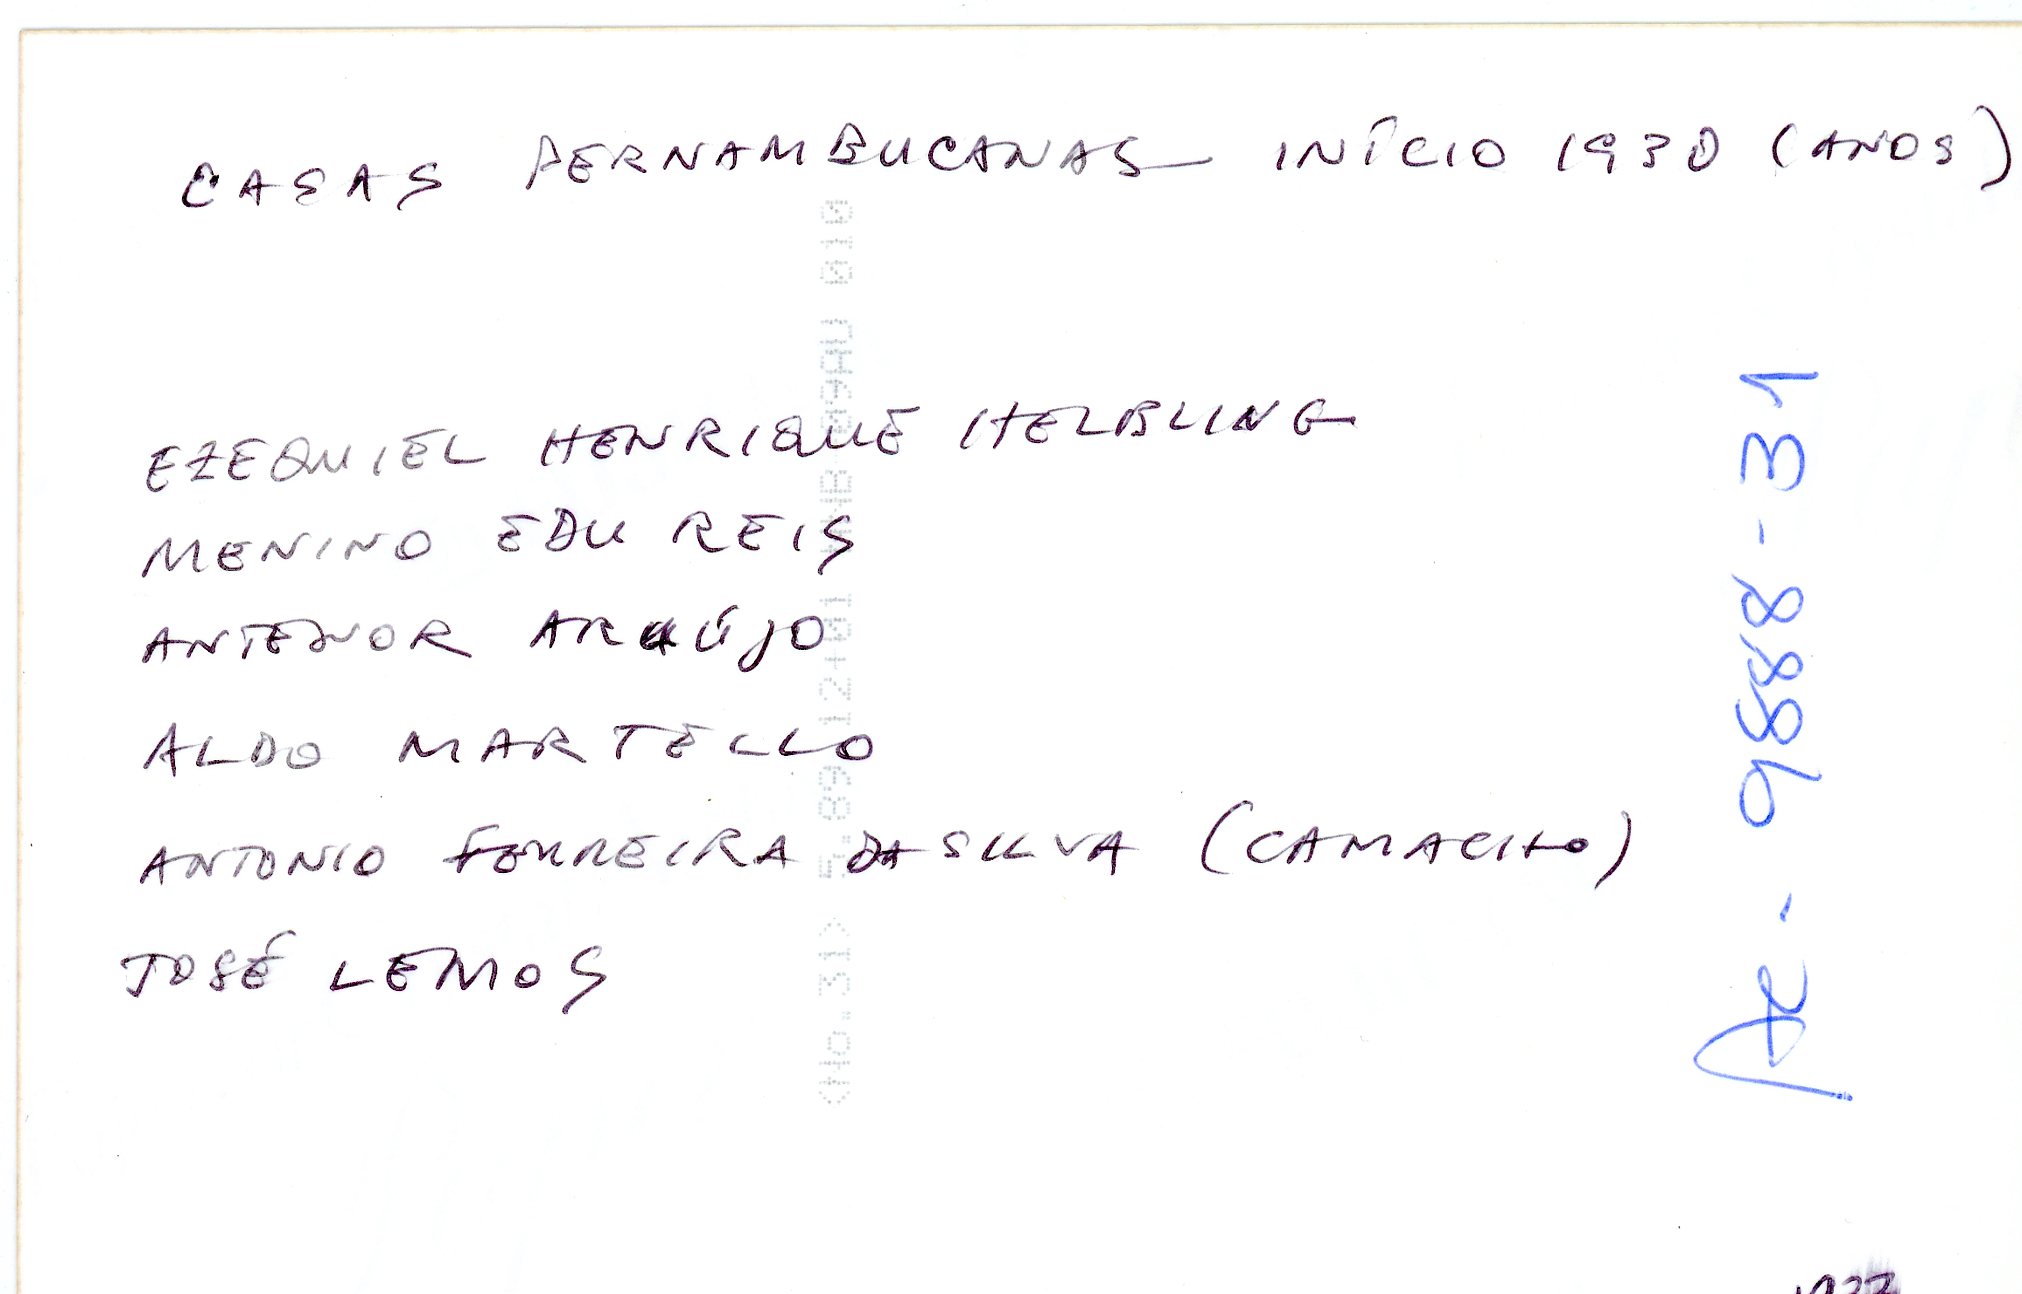 CASAS PERNAMBUCANAS INÍCIO 1930 (ANOS)
EZEQUIEL HENRIQUE HELBLING
MENINO EDU REIS
ANTENOR ARAÚJO
ALDO MARTELLO
ANTONIO FERREIRA DA SILVA (CAMACHO)
JOSÉ LEMOS
AC - 9888-31